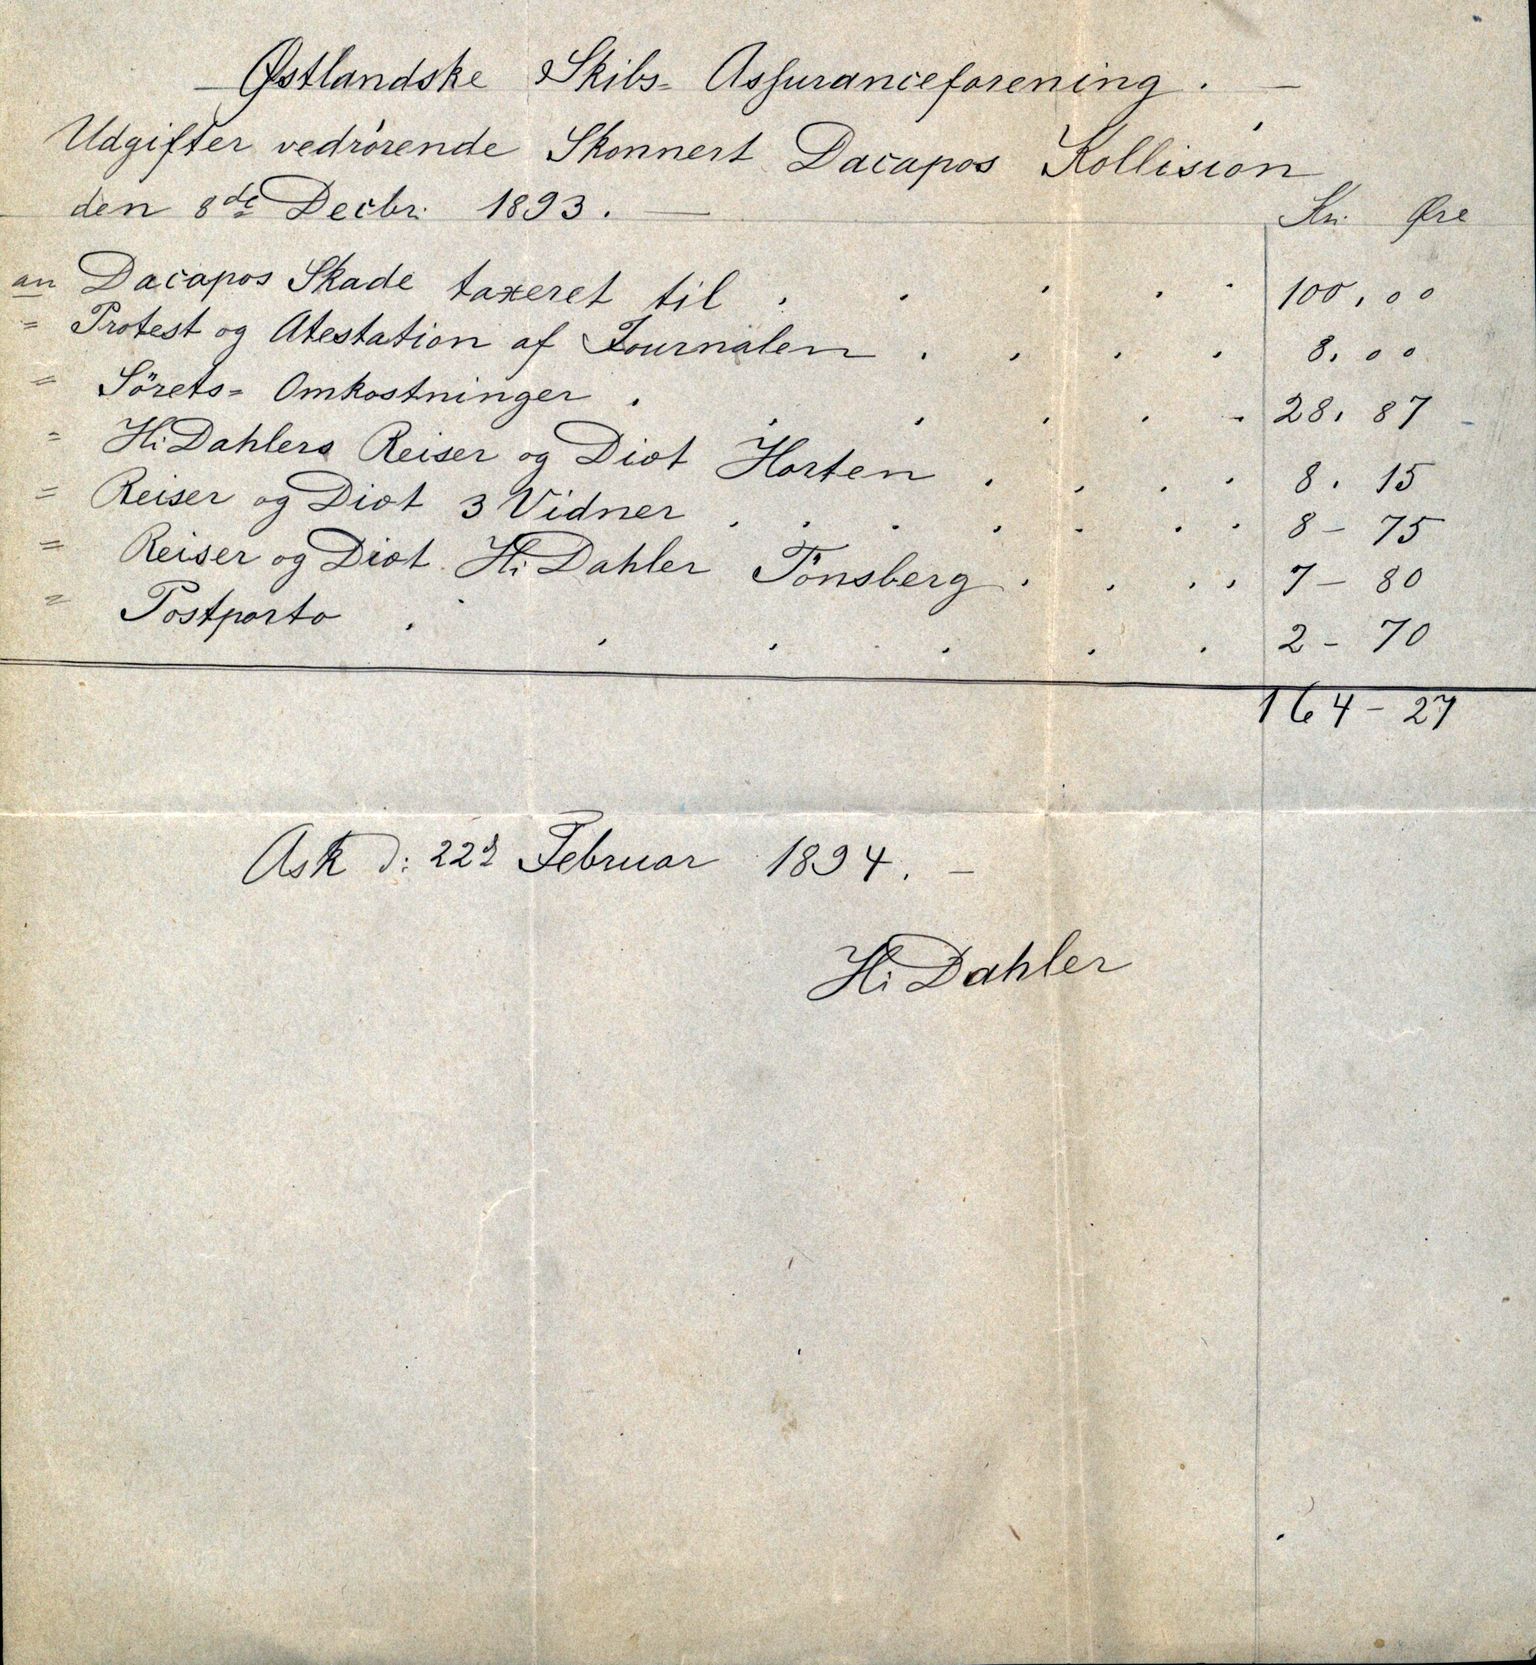 Østlandske Skibs= Assuranceforening.
Udgifter vedrörende Skonnert Dacapos Kollision
den 8de Decbr. 1893.
Kr. Øre
an Dacapos Skade taxeret til . . . . . 100,00
" Protest og Atestation af Journalen . . . . 8,00
" Sörets= Omkostninger . . . . . . 28, 87
" H. Dahlers Reiser og Diæt Horten . . . . 8. 15
" Reiser og Diæt 3 Vidner . . . . . . . 8 - 75
" Reiser og Diæt H. Dahler Tönsberg . . . . 7 - 80
" Postporto . . . . . . 2 - 70
164 - 27
Ask d: 22d Februar 1894. -
H. Dahler